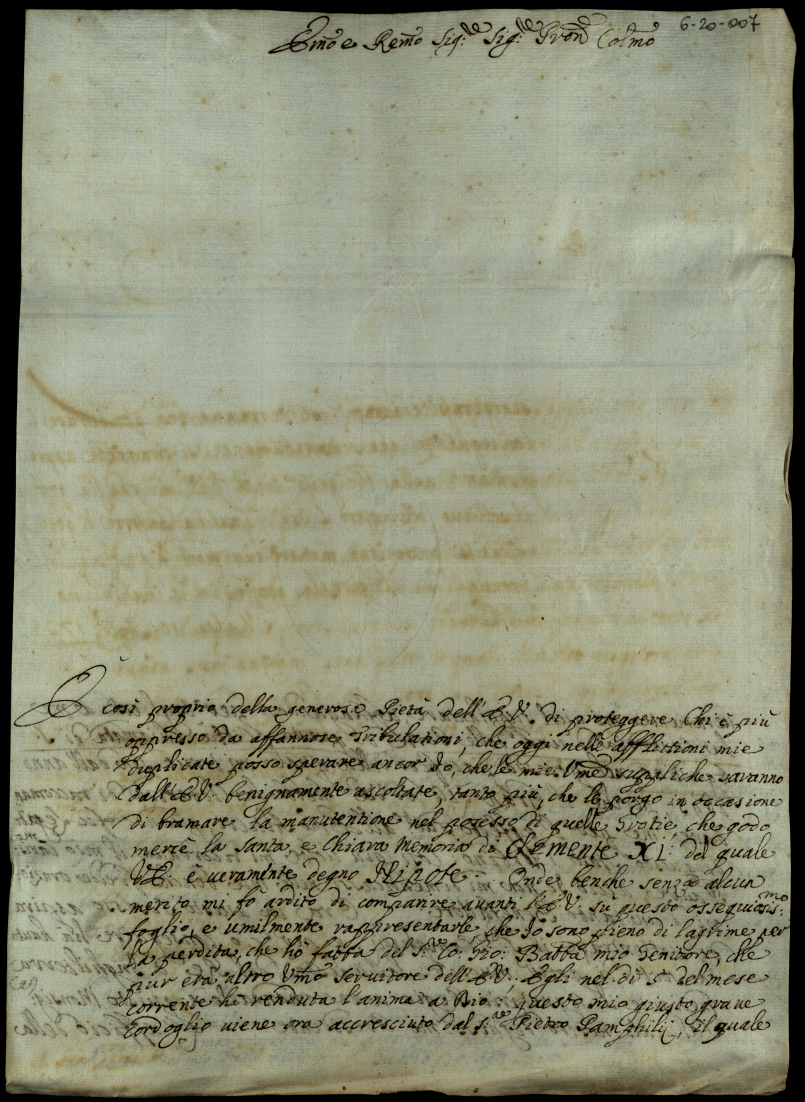 6-20-007
Emo e Remo Sig:re Sig:re Pron Colmo
È così proprio della generosa Pietà dell'E.V. di proteggere chi è più
oppresso da affannose tribulationi, che oggi nelle afflittioni mie
duplicate posso sperare ancor Io, che le mie Ume suppliche saranno
dall'E.V. benignamente ascoltate, tanto più, che le porgo in occasione
di bramare la manutentione nel possesso di quelle Gratie, che godo
mercè la santa, e Chiara memoria di Clemente XI: del quale
V.E. è veramente degno Nipote. Onde benche senza alcun
merito mi fò ardito di comparire avanti l'E.V. su questo ossequiosis:mo
foglio, e umilmente rappresentarle, che Io sono pieno di lagrime per
la perdita, che hò fatta del s:re Co: Gio: Batta mio Genitore, che
pur era altro Umo servitore dell'E.V; Egli nel dì 5 del mese
corrente hà renduta l'anima a Dio: questo mio giusto, grave
Cordoglio viene ora accresciuto dal s:re Pietro Pamphilij, il quale